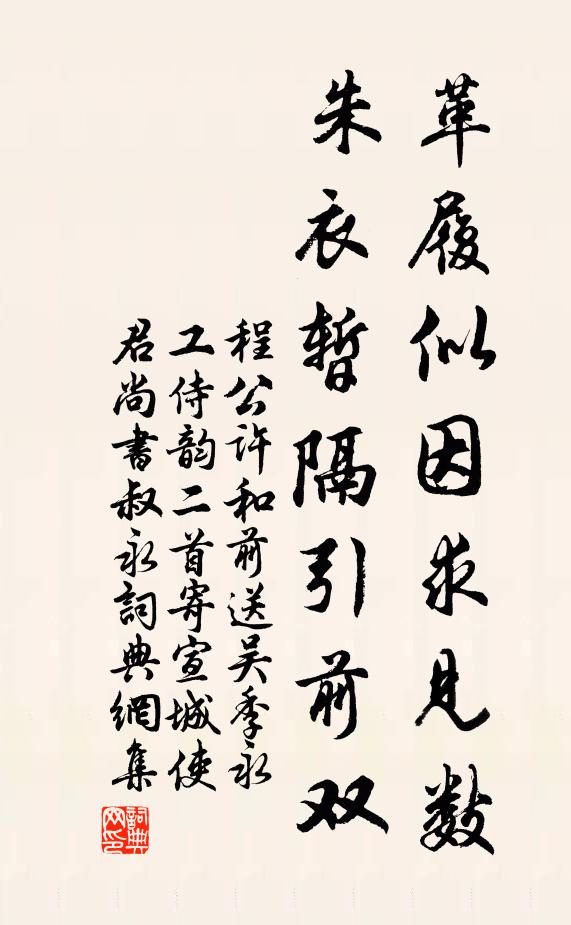 革履似因求見数
朱衣暂隔引前双
程公许和前送吴季永
工侍韵二首寄宣城使
君尚書叔永詞典網集
詞典网印